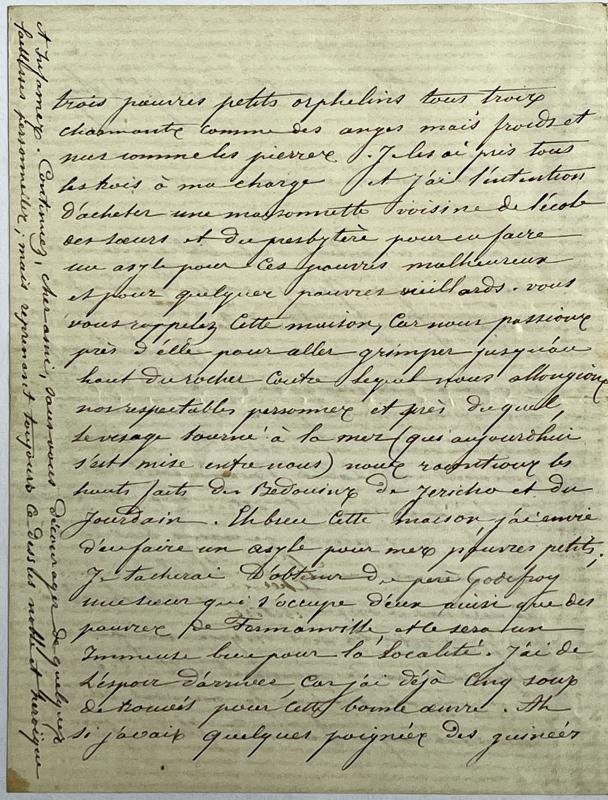 trois pauvres petits orphelins tous troix
charmants comme des anges mais froids et
nus comme les pierrex. Je les ai pris tous
les trois à ma charge et j'ai l'intention
d'acheter une maisonnette voisine de l'école
des sœurs et du presbytère pour en faire
un asyle pour ces pauvres malheureux
et pour quelques pauvres vieillards. vous
vous rappelez cette maison, car nous passioux
près d'elle pour aller grimper jusqu'au
haut du rocher contre lequel nous allongioux
nos respectables personnex et près duquel,
le visage tourné à la mer (qui aujourd'hui
s'est mise entre nous) noux racontioux les
hauts faits des Bedouinx de Jericho et du
Jourdain. Eh bien cette maison j'ai envie
d'en faire un asyle pour mex pauvres petits,
Je tacherai d'obtenir du père Godefroy
une sœur qui s'occupe d'eux ainsi que des
pauvrex de Fermanville, et le sera un
immense bien pour la localité. J'ai de
l'espoir d'arriver, car j'ai déjà cinq soux
de trouvés pour cette bonne œuvre. Ah
si j'avaix quelques poignéex des guineés
Continuez, cher ami, sans vous décourager de quelquex
faiblesses personnellex; mais reprenant toujours le dessus noble et heroïque